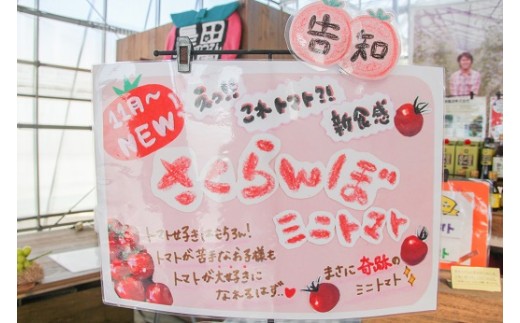 告知
11月〜
NEW!
えっ!!
これトマト?!
新食感
さくらんぼ
ミニトマト
トマト好きはもちろん!
トマトが苦手なお子様も
トマトが大好きに
なれるはず..
まさに奇跡の
ミニトマト